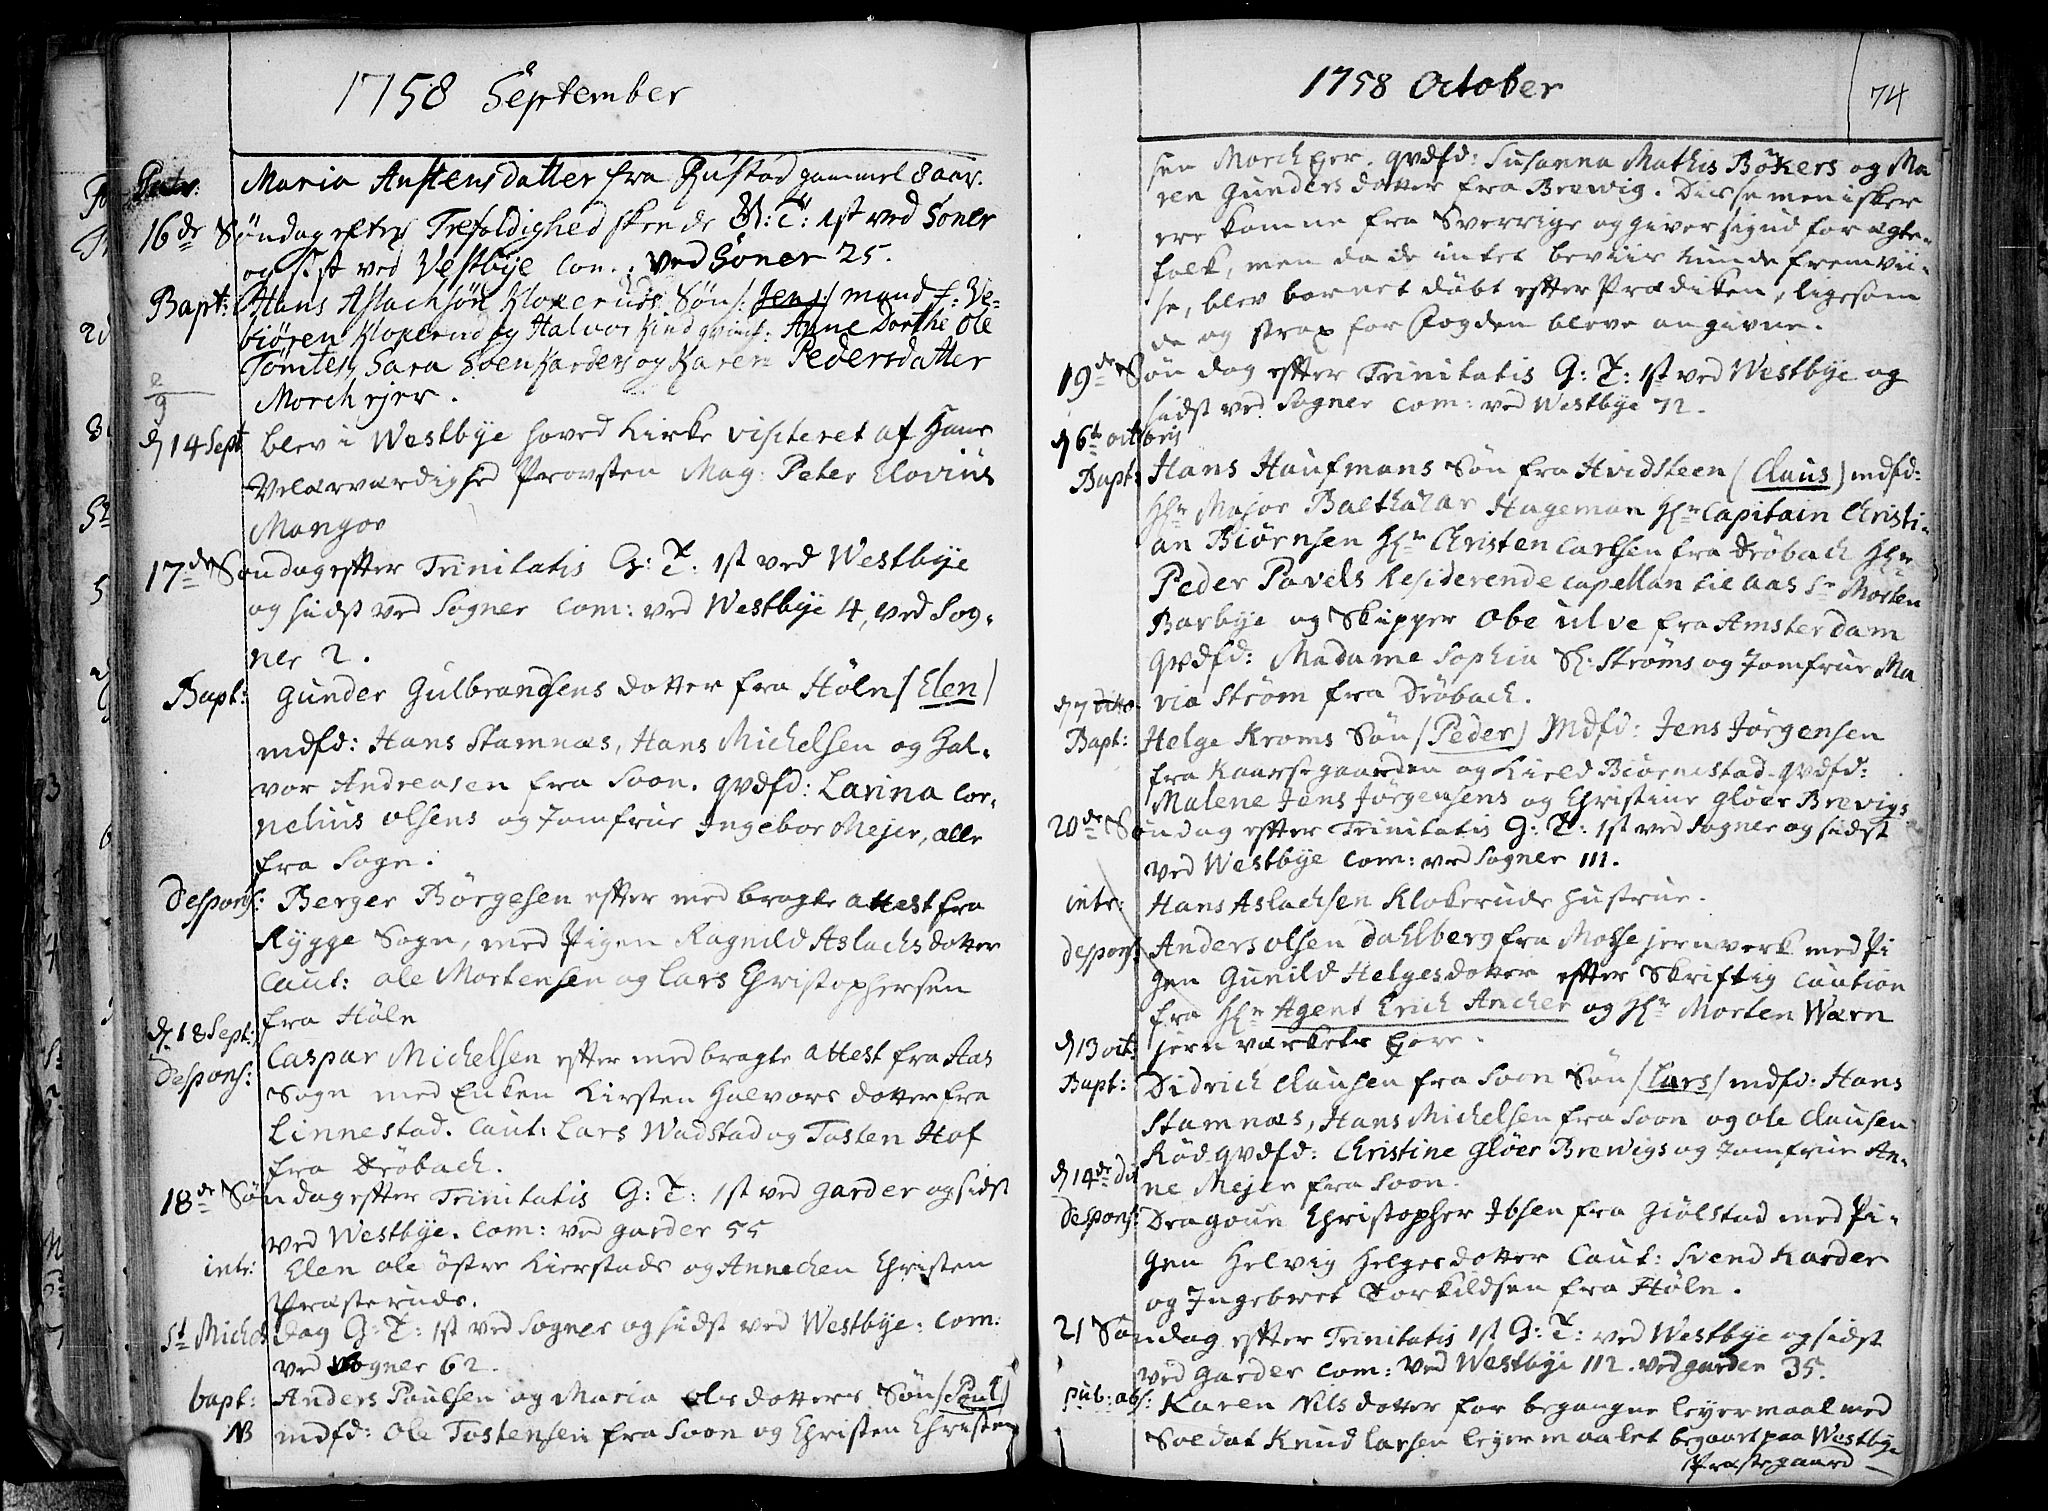 1758 September
Maria Austensdatter fra Rustad gammel 8 aar.
16de Søndag efter Trefoldighed skende G: T: 1st ved Soner
og sist ved Vestbye Con.. ved Soner 25.
Bapt: Hans Aslachsøn Klokeruds Søn /: Jens :/ mand f: Ve-
biøren Klokerud og Halvor Anne Dorthe Ole
Tømtes, Sara Soen Karders og Karen Pedersdatter
Morch ejer.
d 14 Sept blev i Westbye hoved Kirke visiteret af Hans
Velærværdighed Provsten Mag: Peter Elovius
Mangor
17de Søndag efter Trinitatis G: T: 1st ved Westbye
og sidst ved Sogner Com: ved Westbye 4, ved Sog-
ner 2.
Bapt: Gunder Gulbrandsens dotter fra Høln (Elen)
mdfd: Hans Stamnæs, Hans Michelsen og Hal-
vor Andreasen fra Soon. qvdfd: Larina Cor-
nelius Olsens og Jomfrue Ingebor Mejer, alle
fra Sogn.
Despons: Berger Børgesen efter medbragte Attest fra
Rygge Sogn, med Pigen Ragnild Aslachs dotter
Caut: Ole Mortensen og Lars Christophersen
fra Høln
d. 18 Sept:
Despons: Caspar Michelsen efter medbragte Attest fra Aas
Sogn med Enken Kirsten Halvors dotter fra
Linnestad. Caut: Lars Wadstad og Tosten Hof
fra Drøbach.
18de Søndag efter Trinitatis G: T: 1st ved Garder og sidst
ved Westbye. Com: ved Garder 55
intr: Elen Ole østre Kierstads og Annechen Christen
Præsteruds.
St Michels dag G: T: 1st ved Sogner og sidst ved Westbye: Com:
ved Sogner 62.
bapt: Anders Paulsen og Maria Ols dotters Søn (Poul)
NB mdfd: Ole Tostensen fra Soon og Christen Christen
1758 October
74
sen Morch ejer. qvdfd: Susanna Mathis Bøkers og Ma
ren Gunders dotter fra Brewig. Disse menisker
ere komne fra Sverrige og giver sig ud for ægte-
folk, men da de intet beviis kunde fremvii-
se, blev barnet døbt efter Prædiken, ligesom
de og strax for Fogden bleve angivne.
19de Søndag efter Trinitatis G: T: 1st ved Westbye og
sidst ved Sogner Com: ved Westbye 72.
d 6te octobris
Bapt: Hans Haufmans Søn fra Hvidsteen (Claus) mdfd:
Hr Major Balthazar Hageman Hr Capitain Christi-
an Biørnsen Hr Christen Carlsen fra Drøbach Hr
Peder Pavels Residerende Capellan til Aas Sr Morten
Barbye og Skipper Obe Ulve fra Amsterdam
qvdfd: Madame Sophia Sl: Strøms og Jomfrue Ma
ria Strøm fra Drøbach.
d 7 ditto
Bapt: Helge Kroms Søn (Peder) Mdfd: Jens Jørgensen
fra Kaursegaarden og Kield Biørnestad. qvdfd:
Malene Jens Jørgensens og Christine Gløer Brevigs
20de Søndag efter Trinitatis G: T: 1st ved Sogner og sidst
ved Westbye Com: ved Sogner 111.
intr: Hans Aslachsen Klokeruds Hustrue.
despons: Anders Olsen Dahlberg fra Mosse jernverk med Pi
gen Gunild Helgesdotter efter Skriftlig Caution
fra Hr Agent Erich Ancher og Hr Morten Wærn
jernværkets Eere.
d 13 oct:
Bapt: Didrich Clausen fra Soon Søn (Lars) mdfd: Hans
Stamnæs, Hans Michelsen fra Soon og Ole Clausen
Rød qvdfd: Christine Gløer Brewigs og Jomfrue An-
ne Mejer fra Soon.
d 14de dit
Despons: Dragoun Christopher Ibsen fra Giølstad med Pi-
gen Helvig Helgesdotter Caut: Svend Karder
og Ingebret Torkildsen fra Høln.
21 Søndag efter Trinitatis 1st G: T: ved Westbye og sidst
ved Garder Com: ved Westbye 112. ved Garder 35.
Pub: abs: Karen Nils dotter for begangne leyermaal med
Soldat Knud Larsen leyermaalet begaaet paa Westbye
Præstegaard